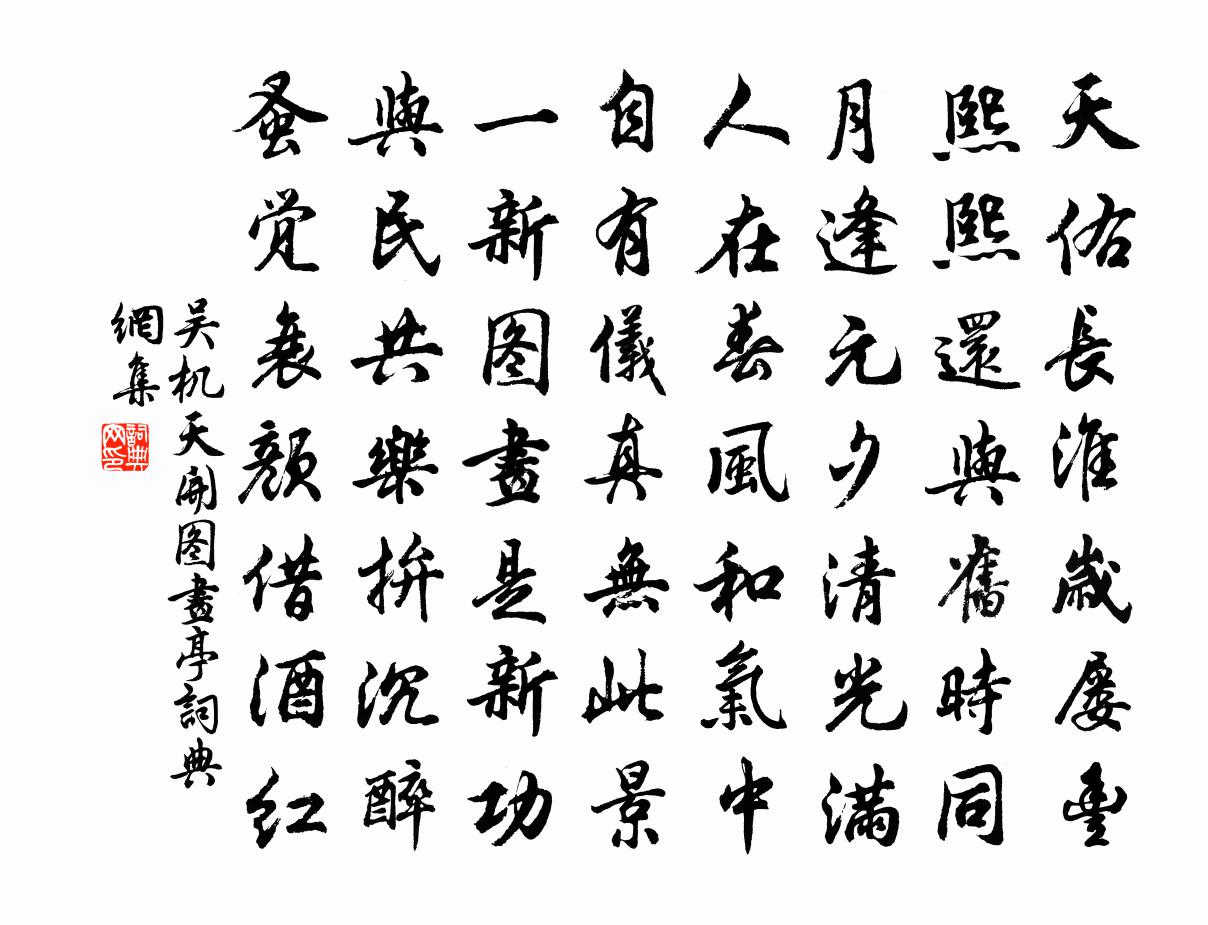 天佑長淮歲屡豊
熙熙還與舊時同
月逢元夕清光滿
人在春風和氣中
自有儀真無此景
一新图畫是新功
與民共樂拚沉醉
蚤覚衰顔借酒红
吴机天開图畫亭詞典
網集
詞典
网印